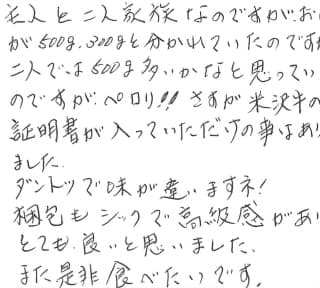 主人と二人家族なのですが、お
が500g.300gと分かれていたのです
二人では500g多いかなと思ってい
のですが、ペロリ!!さすが米沢牛の
証明書が入っていただけの事はあり
ました。
ダントツで味が違いますネ!
梱包もシックで高級感があり
とても良いと思いました。
また是非食べたいです。